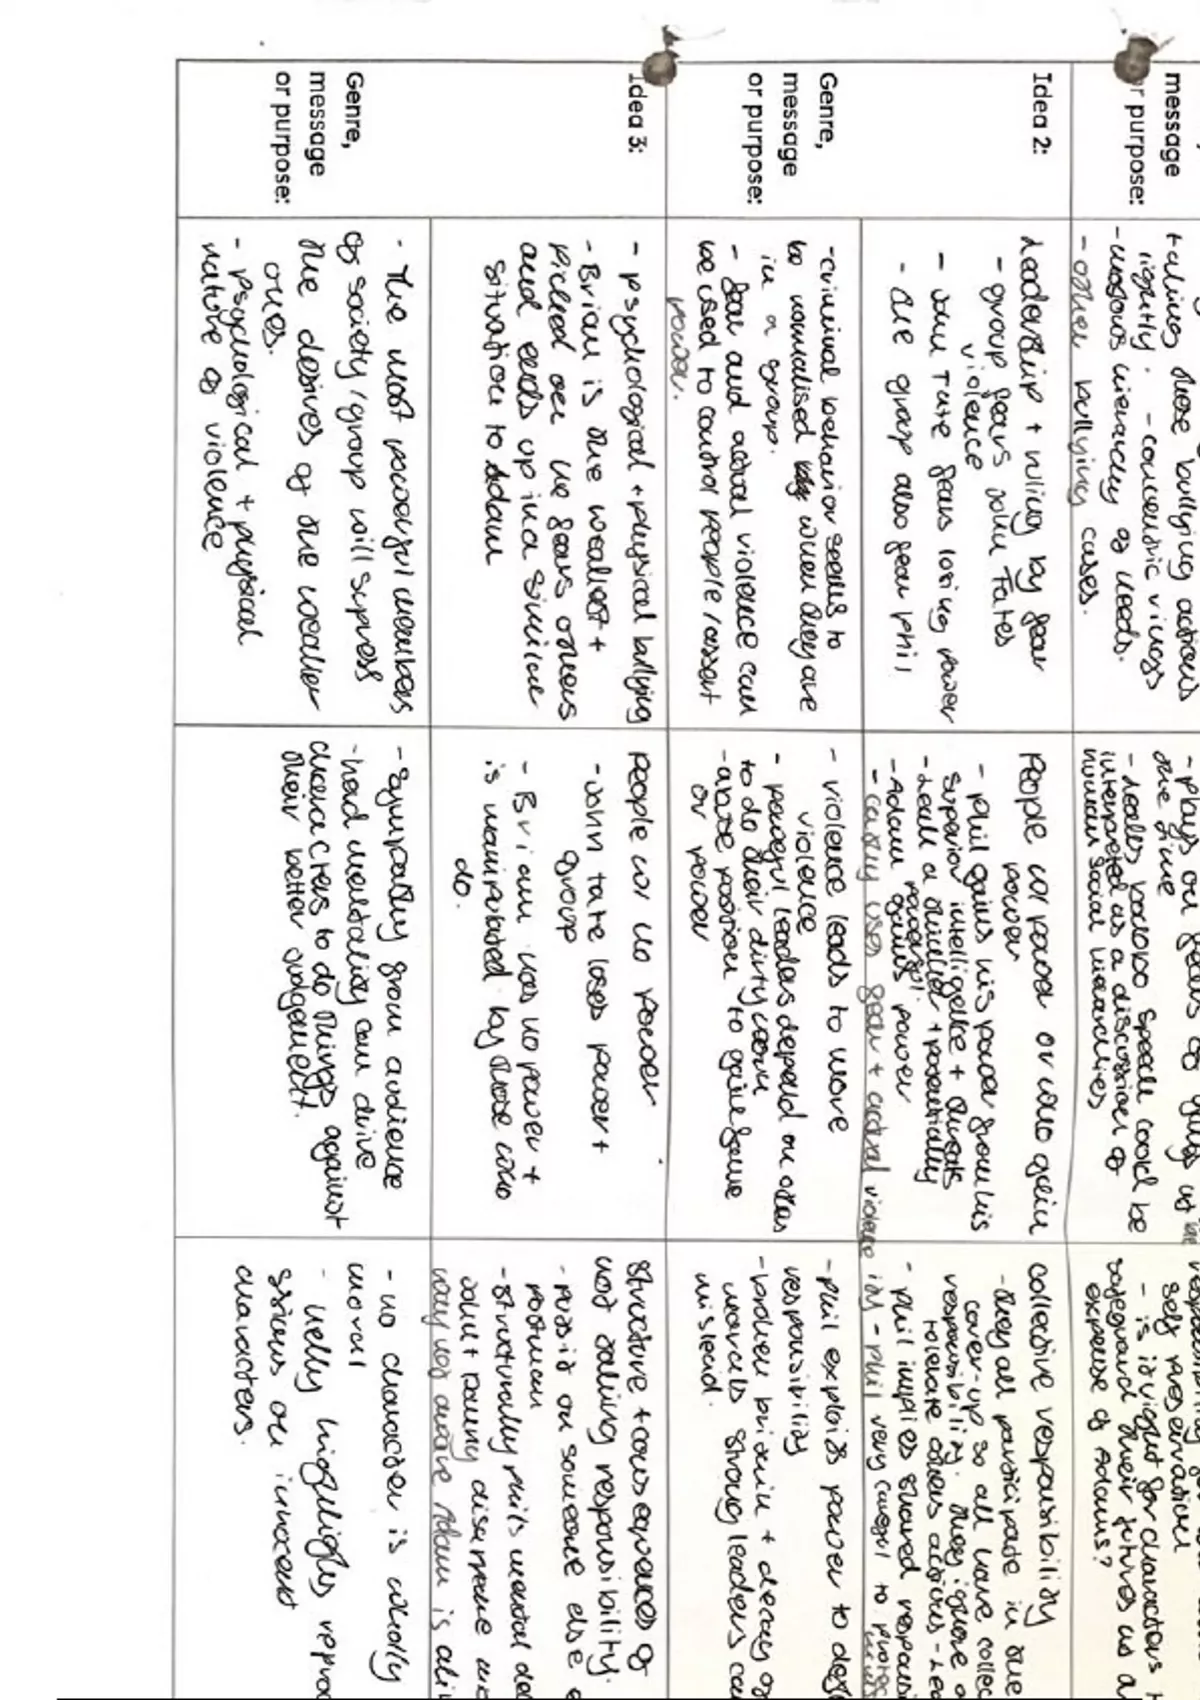 message
or purpose:
taking these bullying actions
lightly. - concentric viness
- shows hierarchy of needs.
- other bullying cases.
- plays on
the time
- Leahs bonobo speech could be
interpreted as a discussion of
human social hierarchies
self preservation
- is it right for characters
safeguard their futures
expense of Adams?
Idea 2:
Leadership + ruling by fear
- group fears John Tates
violence
- John Tate fears losing power
- the group also fear phil
People w/ power or who gain
power
- phil gains his power from his
superior intelligence + threats
- Leah a thinker + potentially
powerful.
- Adam gains power
- Cathy uses fear + actual violence
collective responsibility
- they all participate in the
cover-up so all have collec
responsibility. they ignore o
tolerate others actions - Lea
- phil implies shared responsi
ity - phil very careful to protec
Genre,
message
or purpose:
- criminal behavior seems to
be normalised when they are
in a group.
- fear and actual violence can
be used to control people / assert
power.
- violence leads to more
violence
- powerful leaders depend on others
to do their dirty work
- abuse position to gain fame
or power
- phil exploits power to
responsibility
- broken britain + decay of
morals strong leaders ca
mislead.
Idea 3:
- psychological + physical bullying
- Brian is the weakest +
picked on. he fears others
and ends up in a similar
situation to Adam
People w/ no power
- John tate loses power +
group
- Brian has no power +
is manipulated by those who
do.
structure + consequences of
not taking responsibility.
- pus it on someone else
postman
- structurally phils mental de
John + Danny disappear
Adam is ali
Genre,
message
or purpose:
- The most powerful members
of society / group will supress
the desires of the weaker
ones.
- psychological + physical
nature of violence
- sympathy from audience
- herd mentality can drive
characters to do things against
their better judgement.
- no character is wholly
moral
- Kelly highlights
serious on innocent
characters.